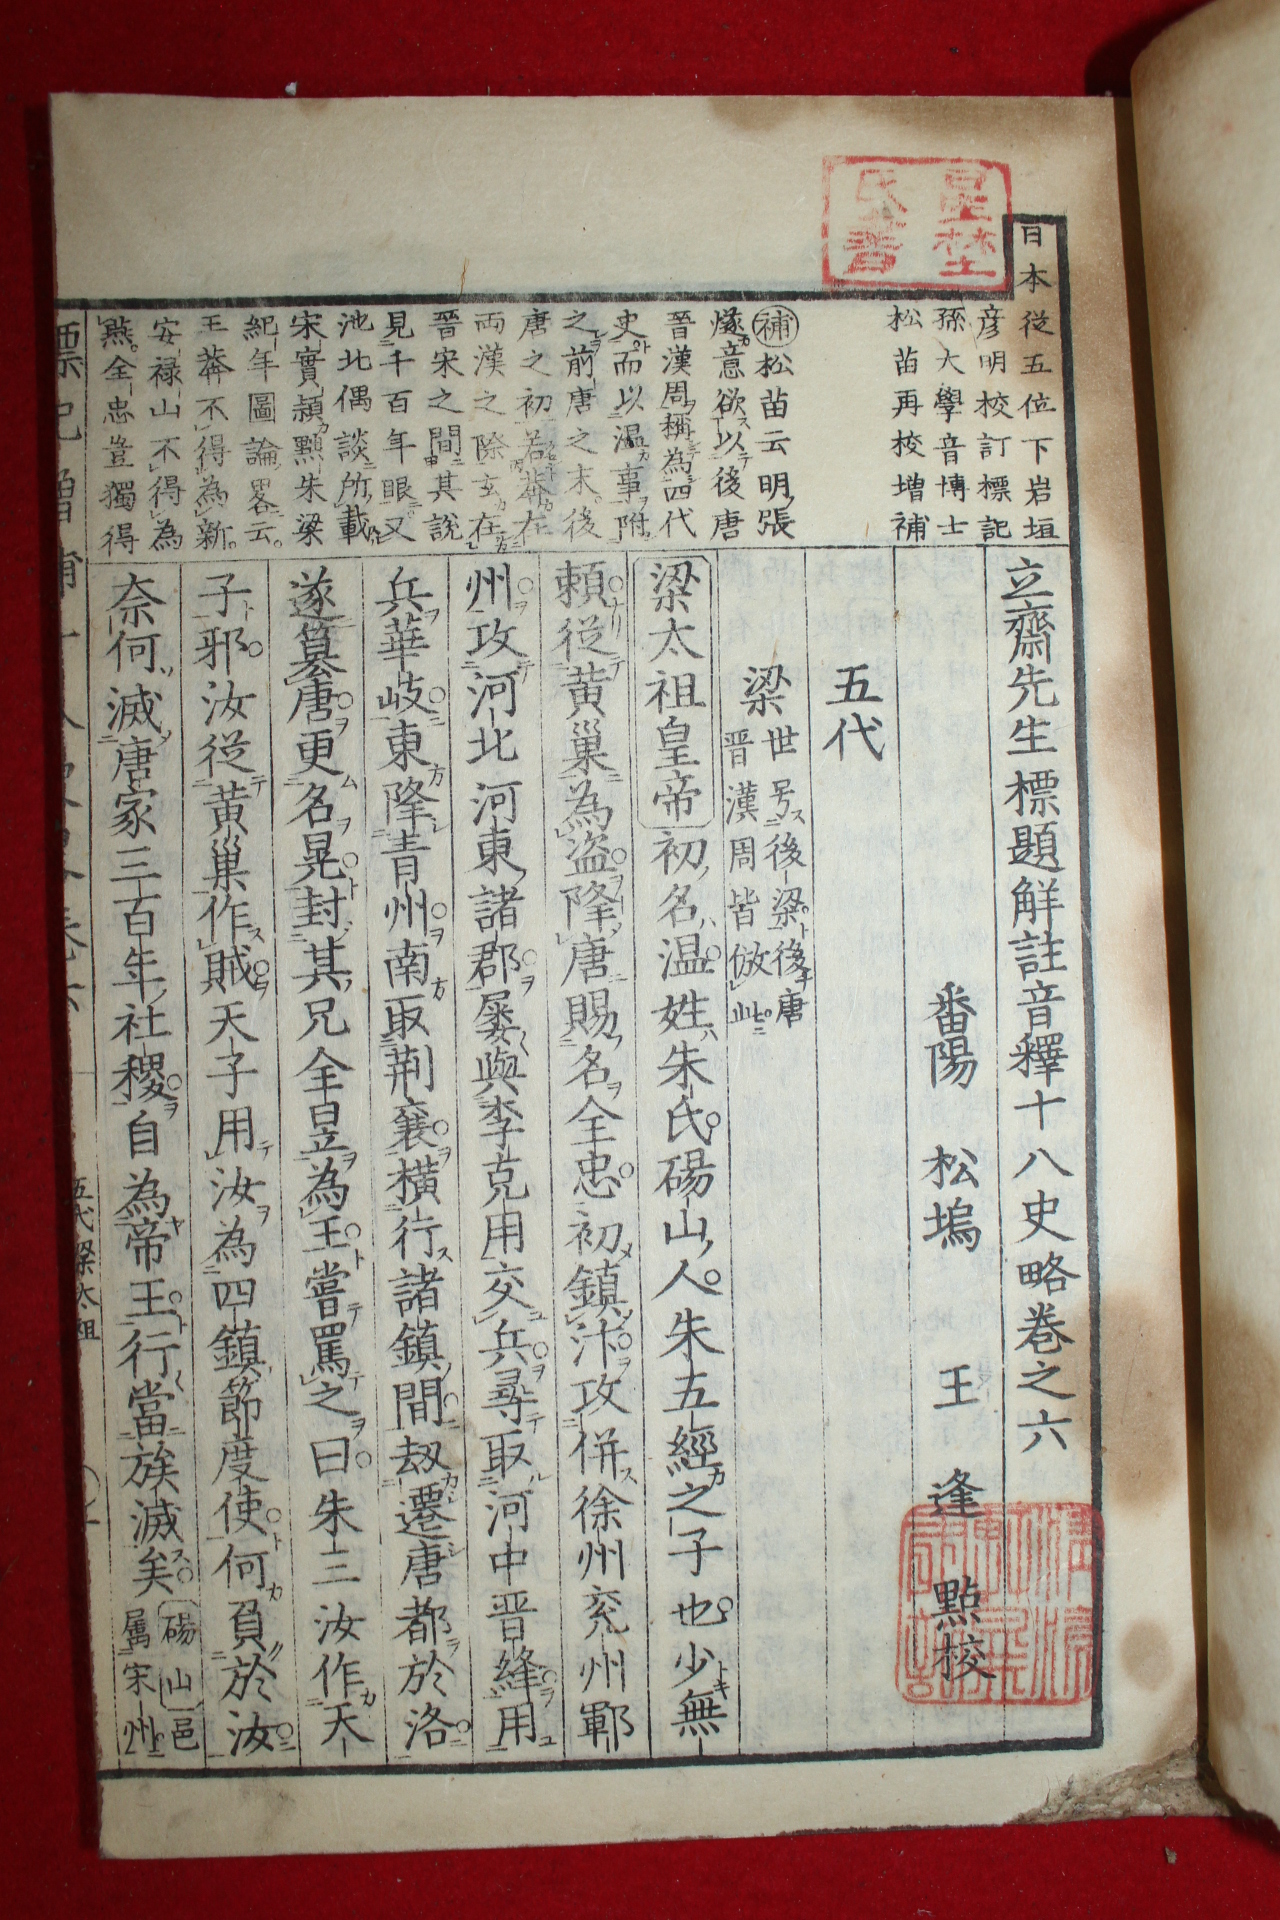 日本從五位下岩垣
彦明校訂標記
孫大學音博士
松苗再校增補
立齋先生標題解註音釋十八史略卷之六
番陽 松塢 王逢 點校
五代
梁 世号後梁後唐
晋漢周皆倣此
梁太祖皇帝初名溫姓朱氏碭山人朱五經之子也少無
賴從黄巢為盗降唐賜名全忠初鎮汴攻併徐州兖州鄆
州攻河北河東諸郡屡與李克用交兵尋取河中晋絳用
兵華岐東降青州南取荆襄横行諸鎮間刼遷唐都於洛
遂簒唐更名晃封其兄全昱為王嘗罵之曰朱三汝作天
子邪汝從黄巢作賊天子用汝為四鎮節度使何負於汝
奈何滅唐家三百年社稷自為帝王行當族滅矣 碭山邑
屬宋州
補松苗云明張
燧意欲以後唐
晉漢周稱為四代
史而以溫事附
之前唐之末後
唐之初若莾在
両漢之際玄在
晉宋之間其說
見千百年眼又
池北偶談所載
宋實頴黜朱梁
紀年圖論畧云
王莾不得為新
安禄山不得為
燕全忠豈獨得
五代梁太祖